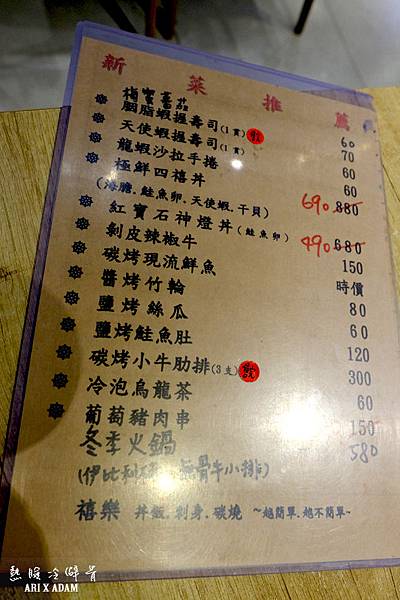 新菜推薦
梅蜜蕃茄 60
胭脂蝦握壽司(1貫) 70
天使蝦握壽司(1貫) 60
龍蝦沙拉手捲 60
極鮮四禧丼 690 880
(海膽.鮭魚卵.天使蝦.干貝)
紅寶石神燈丼(鮭魚卵) 490 680
剝皮辣椒牛 150
碳烤現流鮮魚 時價
醬烤竹輪 80
鹽烤絲瓜 60
鹽烤鮭魚肚 120
碳烤小牛肋排(3支) 300
冷泡烏龍茶 60
葡萄豬肉串 150
冬季火鍋 580
(伊比利豬.無骨牛小排)
禧樂 丼飯.刺身.碳燒 ~越簡單.越不簡單~
熱暖冷醉骨
ARI X ADAM